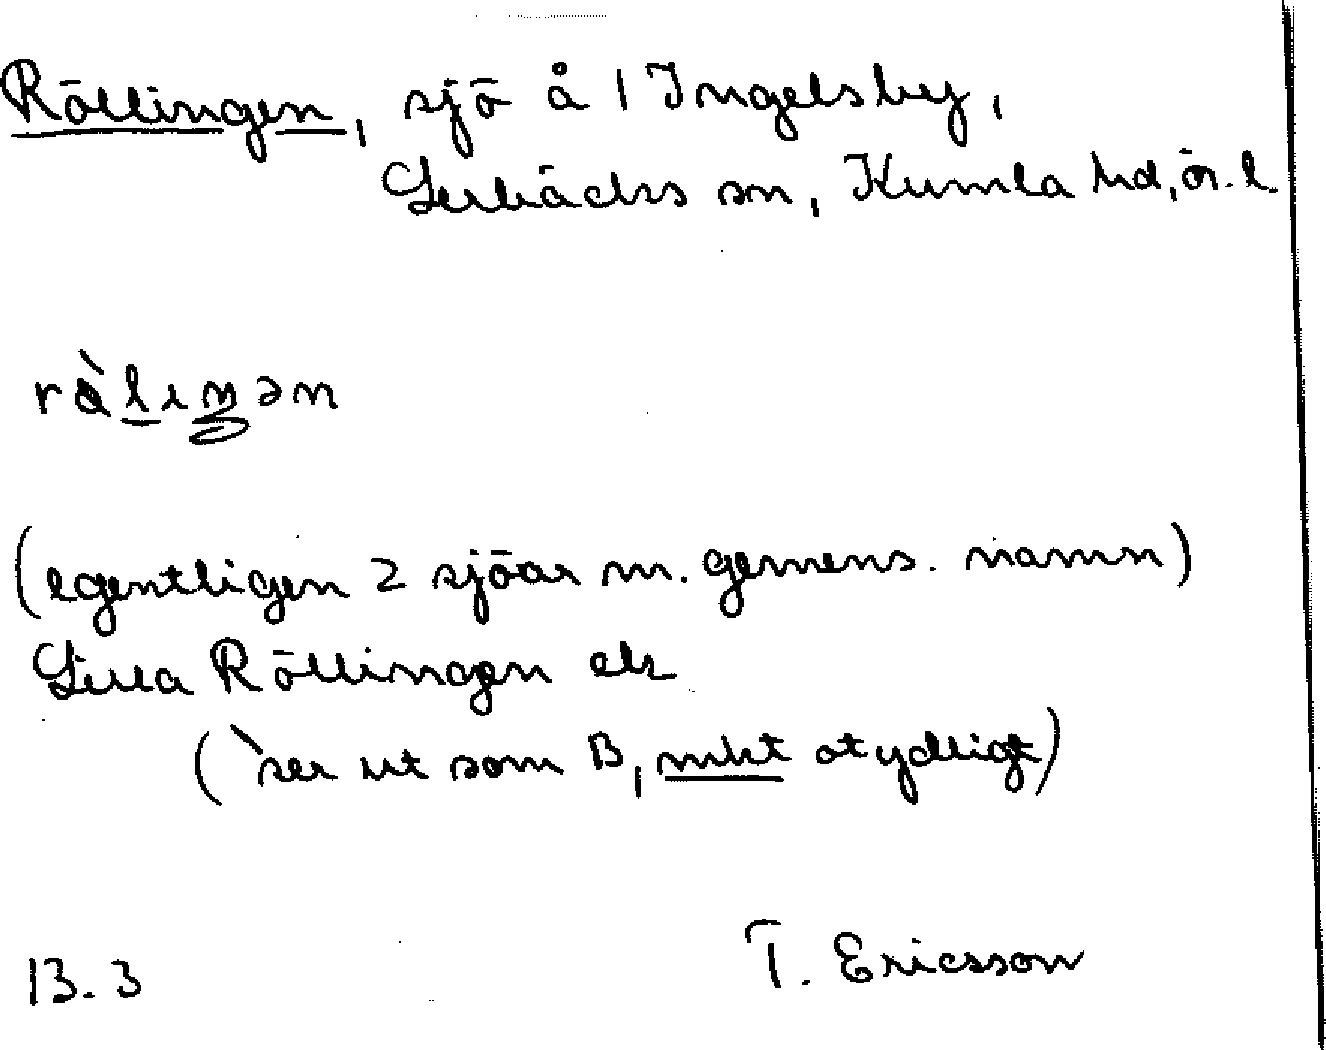 Röllingen, sjö å 1 Ingelsby,
Lerbäcks sn, Kumla hd, ör. l.
ràlıŋən
(egentligen 2 sjöar m. gemens. namn)
Lilla Röllingen etc
(`ser ut som B, mkt otydligt)
13.3 T. Ericsson